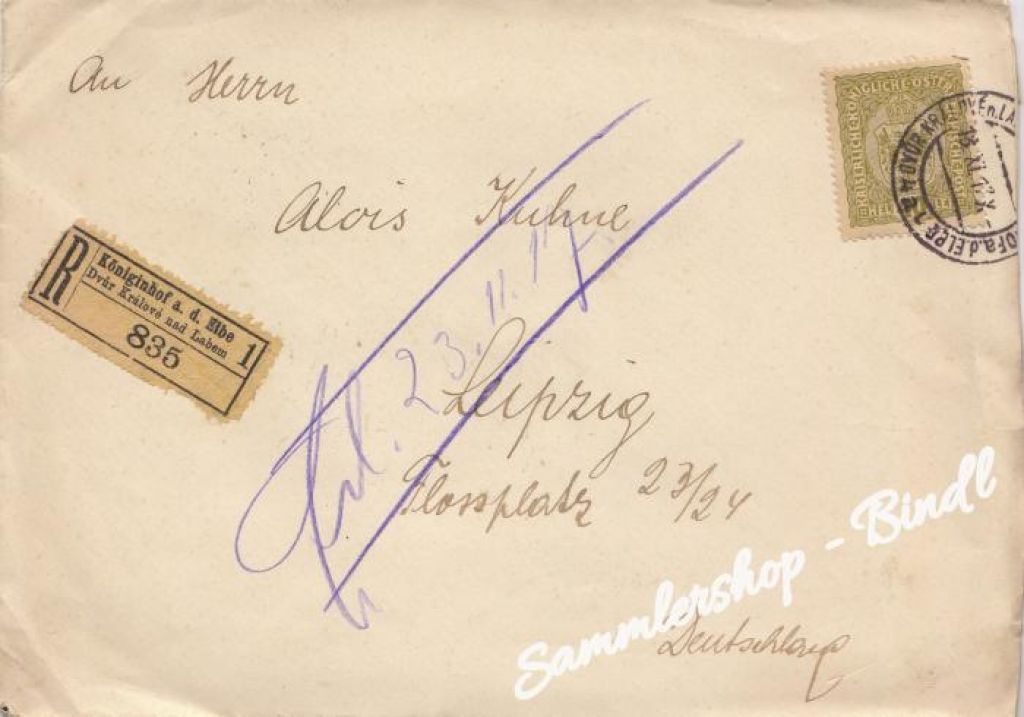 An Herrn
KAISERLICHE KÖNIGLICHE ÖSTE
DVŮR KRÁLOVÉ n. LA
HOF a.d. ELBE
Alois Kuhne
R
Königinhof a. d. Elbe 1
Dvůr Králové nad Labem
835
23. 11. 17.
Leipzig
Flossplatz 23/24
Sammlershop - Bindl
Deutschland